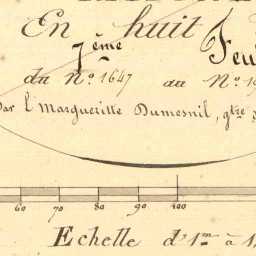 En huit Feu
7ème
du No. 1647 au No. 1
Par l. Margueritte Dumesnil, gtre
60 70 80 90 100
Echelle d'1m à 1